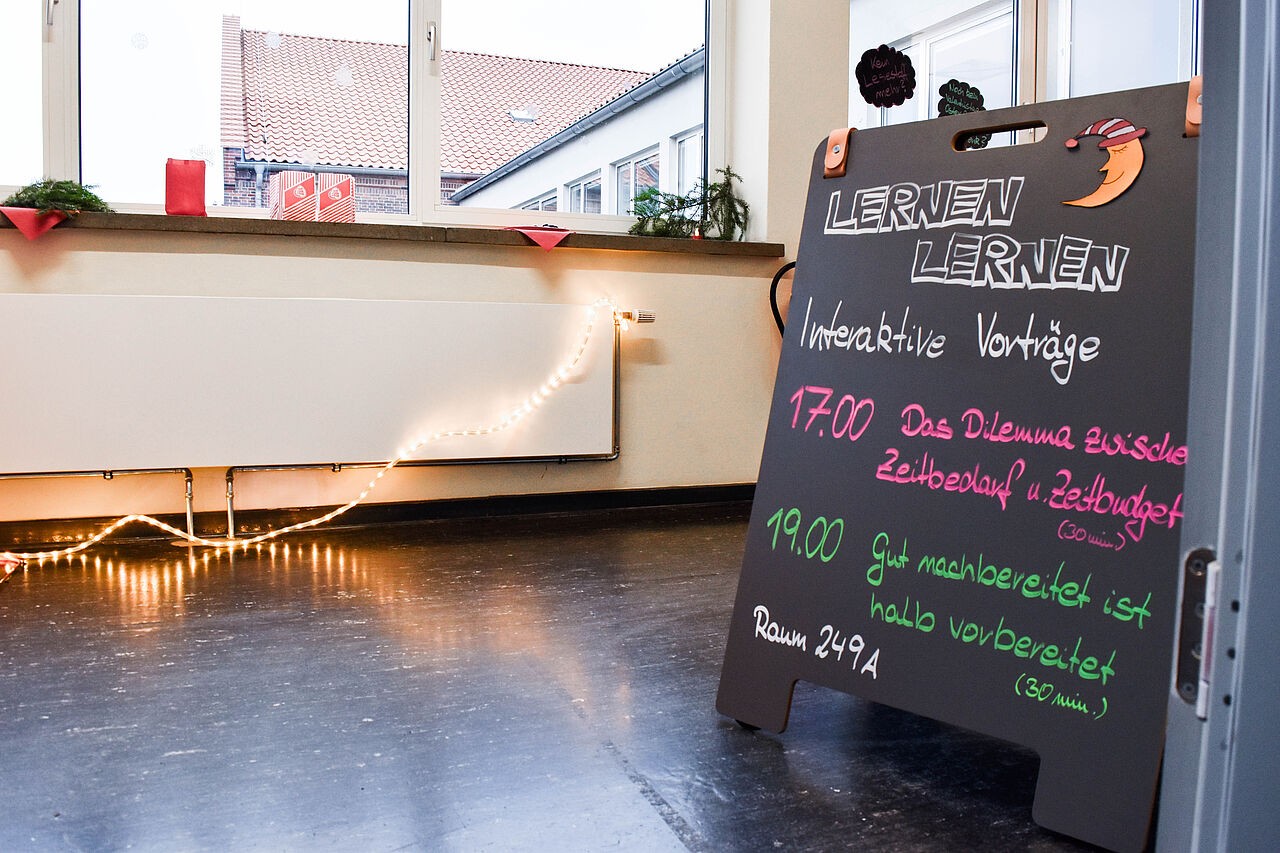 Kein
Lesestoff
mehr?
LERNEN
LERNEN
Interaktive Vorträge
17.00 Das Dilemma zwische
Zeitbedarf u. Zeitbudget
(30min.)
19.00 Gut nachbereitet ist
halb vorbereitet
(30min.)
Raum 249A